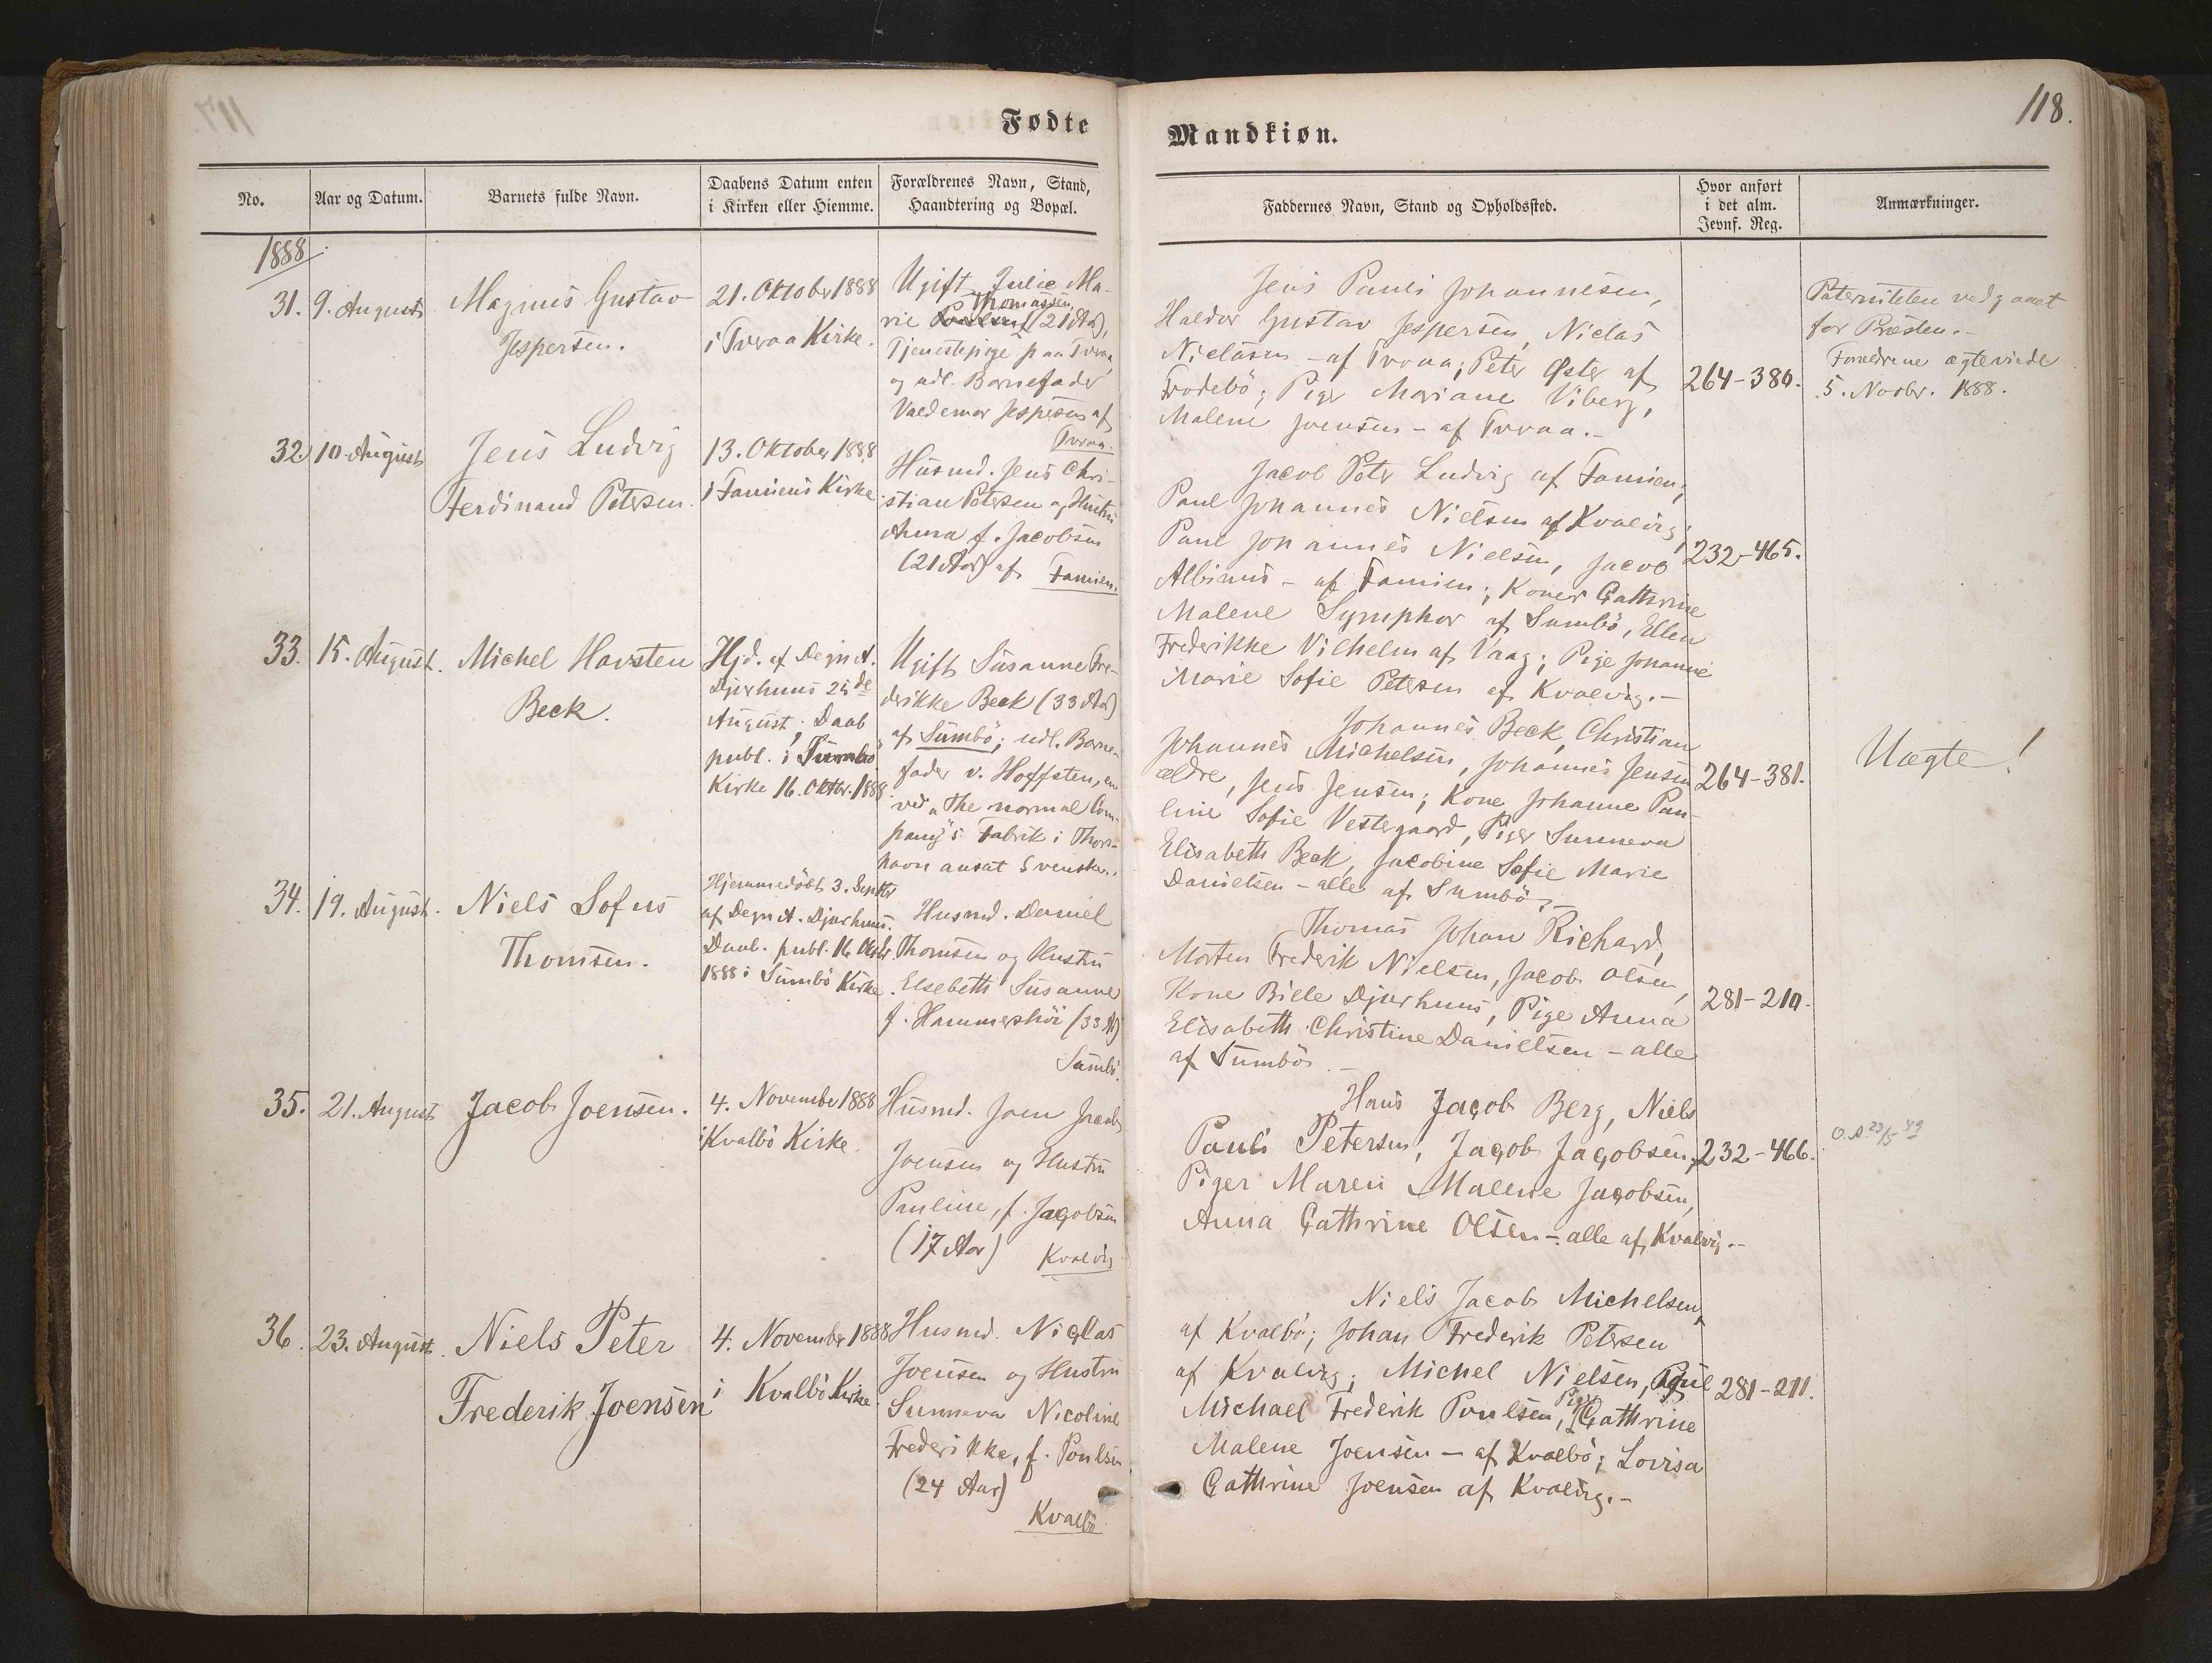 118.
Fødte
Mandkiøn.
No.
Aar og Datum.
Barnets fulde Navn.
Daabens Datum enten
i Kirken eller Hiemme.
Forældrenes Navn, Stand,
Haandtering og Bopæl.
Faddernes Navn, Stand og Opholdssted.
Hvor anført
i det alm.
Jevnf. Reg.
Anmærkninger.
1888
31.
9. August
Magnus Gustav
Jespersen.
21. Oktober 1888
i Tvraa Kirke.
Ugift Julie Ma-
Thomassen
rie (21 Aar),
Tjenestepige paa Tvraa
og udl. Barnefader
Valdemar Jespersen af
Tvraa.
Jens Pauli Johannesen,
Haldor Gustav Jespersen, Niclas
Niclasen - af Tvraa; Peter Øster af
Frodebö; Piger Mariane Viberg,
Malene Joensen - af Tvraa.-
264-380.
Paterniteten vedgaaet
for Præsten.-
Forældrene ægteviede
5. Novbr. 1888.
32.
10. August
Jens Ludvig
Ferdinand Petersen.
13. Oktober 1888
i Famiens Kirke
Husmd. Jens Chri-
stian Petersen og Hustru
Anna f. Jacobsen
(21 Aar) af Famien.
Jacob Peter Ludvig af Famien,
Paul Johannes Nielsen af Kvalvig,
Paul Johannes Nielsen, Jacob
Albinus - af Famien; Koner Cathrine
Malene Symphor af Sumbö, Ellen
Frederikke Vilhelm af Vaag; Pige Johanne
Marie Sofie Petersen af Kvalvig.-
232-465.
33.
15. August.
Michel Havsten
Beck.
Hjd. af Degn A.
Djurhuus 25de
August; Daab
publ. i Sumbö
Kirke 16. Oktbr. 1888
Ugift Susanne Fre-
derikke Beck (33 Aar)
af Sumbö; udl. Barne-
fader v. Hoffsten, en
ved "The normal Com-
pany's Fabrik i Thors-
havn ansat Svensker.
Johannes Beck, Christian
Johannes Michelsen, Johannes Jensen
ældre, Jens Jensen; Kone Johanne Pau-
line Sofie Vestergaard, Piger Sunneva
Elisabeth Beck, Jacobine Sofie Marie
Danielsen - alle af Sumbö.-
264-381.
Uægte!
34.
19. August.
Niels Sofus
Thomsen.
Hjemmedöbt 3. Septbr
af Degn A. Djurhuus.
Daab. publ. 16. Oktbr.
1888 i Sumbö Kirke.
Husmd. Daniel
Thomsen og Hustru
Elsebeth Susanne
f. Hammershöi (33 A)
Sumbö.
Thomas Johan Richard,
Morten Frederik Nielsen, Jacob Olsen,
Kone Bille Djurhuus, Pige Anna
Elisabeth Christine Danielsen - alle
af Sumbö.-
281-210.
35.
21. August
Jacob Joensen.
4. November 1888
i Kvalbö Kirke.
Husmd. Joen Jacob
Joensen og Hustru
Pauline, f. Jacobsen
(17 Aar) Kvalvig
Hans Jacob Berg, Niels
Pauli Petersen, Jacob Jacobsen,
Piger Maren Malene Jacobsen,
Anna Cathrine Olsen - alle af Kvalvig.-
232-466.
O. A. 23/5 49
36.
23. August.
Niels Peter
Frederik Joensen
4. November 1888
i Kvalbö Kirke.
Husmd. Niclas
Joensen og Hustru
Sunneva Nicoline
Frederikke, f. Poulsen
(24 Aar)
Kvalbö
Niels Jacob Michelsen,
af Kvalbö; Johan Frederik Petersen
af Kvalvig; Michel Nielsen, Poul
Michael Frederik Poulsen, Pige Cathrine
Malene Joensen - af Kvalbö; Lovisa
Cathrine Joensen af Kvalvig.-
281-211.